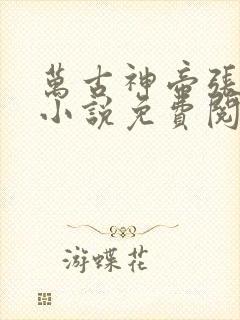 萬古神帝張
小說免費閱
游蝶花